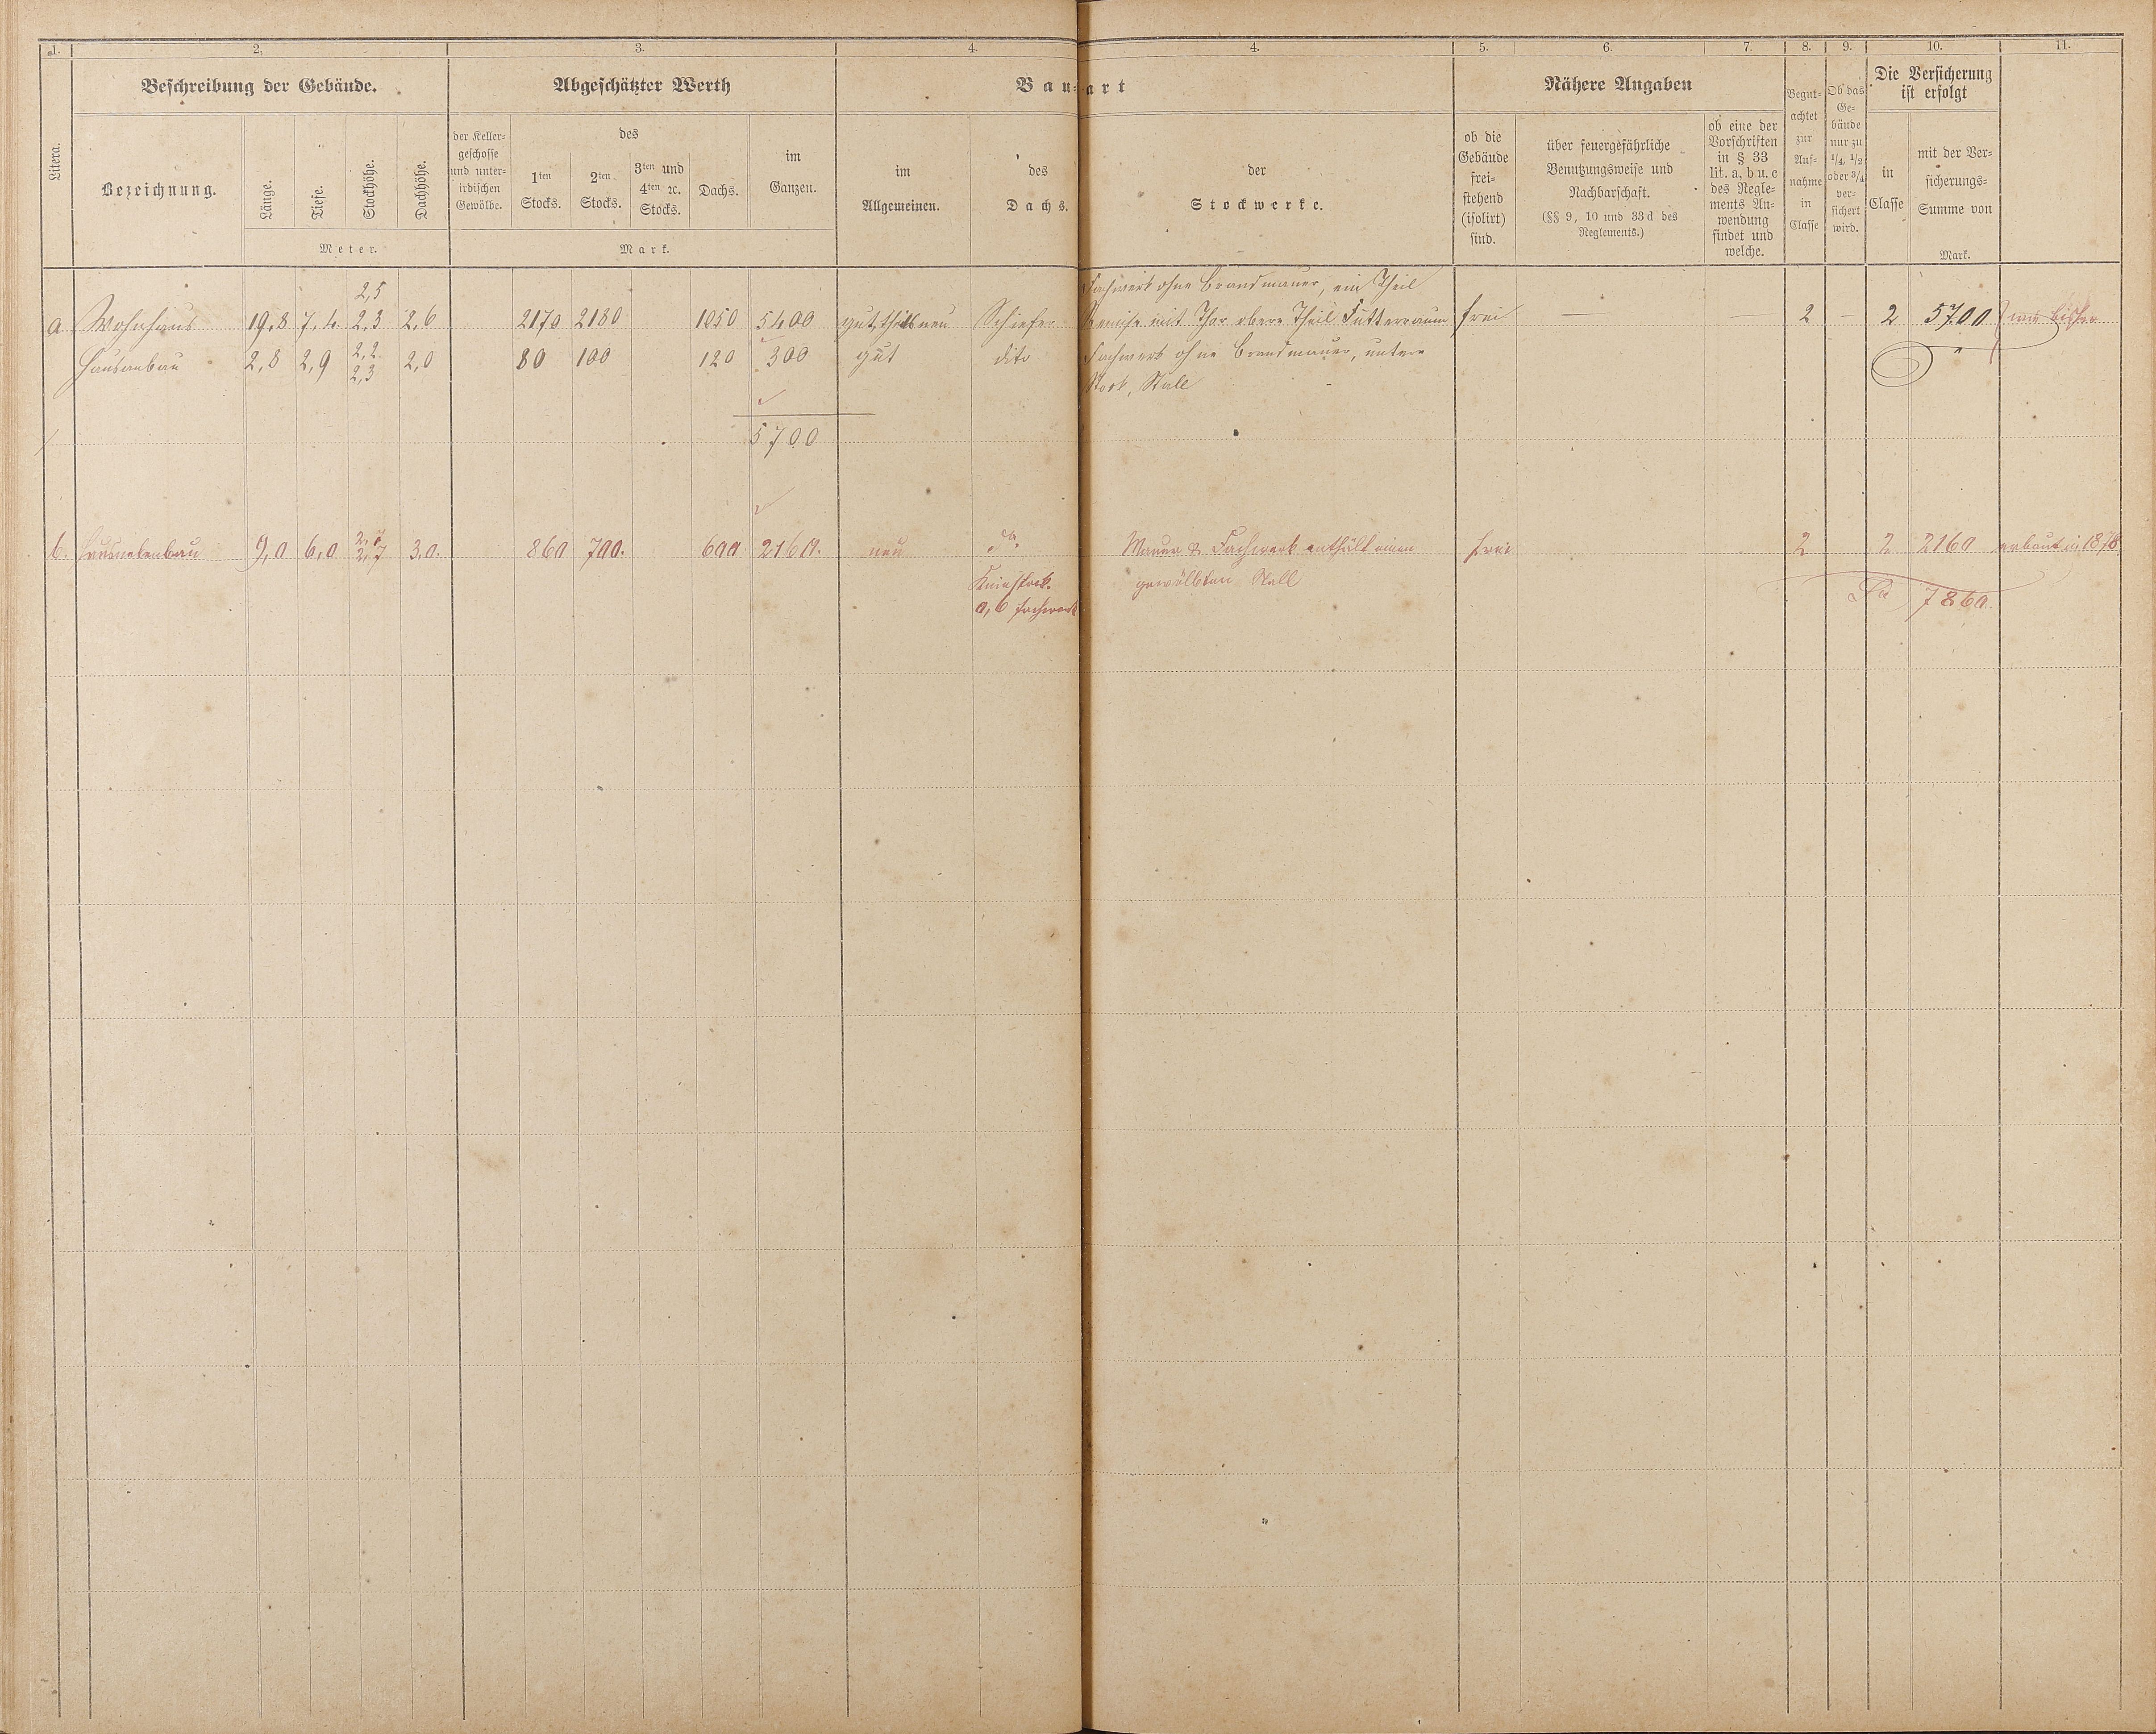 1. 2. 3. 4. 4. 5. 6. 7. 8. 9. 10. 11.
Litera.
Beschreibung der Gebäude.
Bezeichnung.
Länge.
Tiefe.
Stockhöhe.
Dachhöhe.
Meter.
Abgeschätzter Werth
der Keller-
geschosse
und unter-
irdischen
Gewölbe.
des
1ten
Stocks.
2ten
Stocks.
3ten und
4ten ꝛc.
Stocks.
Dachs.
im
Ganzen.
Mark.
Bau-art
im
Allgemeinen.
des
Dachs.
der
Stockwerke.
Nähere Angaben
ob die
Gebäude
frei-
stehend
(isolirt)
sind.
über feuergefährliche
Benutzungsweise und
Nachbarschaft.
(§§ 9, 10 und 33 d des
Reglements.)
ob eine der
Vorschriften
in § 33
lit. a, b u. c
des Regle-
ments An-
wendung
findet und
welche.
Begut-
achtet
zur
Auf-
nahme
in
Classe
Ob das
Ge-
bäude
nur zu
1/4, 1/2
oder 3/4
ver-
sichert
wird.
Die Versicherung
ist erfolgt
in
Classe
mit der Ver-
sicherungs-
Summe von
Mark.
2,5 Fachwerk ohne Brandmauer, ein Theil
a Wohnhaus 19,8 7,4 2,3 2,6 2170 2180 1050 5400 gut, theils neu Schiefer Remise mit Thor obere Theil Futterraum frei — 2 — 2 5700 wie bisher
2,2
Hausanbau 2,8 2,9 2,3 2,0 80 100 120 300 gut dito Fachwerk ohne Brandmauer, untere
Stock, Stall
5700
2,7
b. 9,0 6,0 2,7 3,0. 860 700. 600 2160. neu do. Mauer & Fachwerk enthält einen frei 2 2 2160 erbaut in 1878
Kniestock. gewölbten Stall
0,6 Fachwerk 7860.